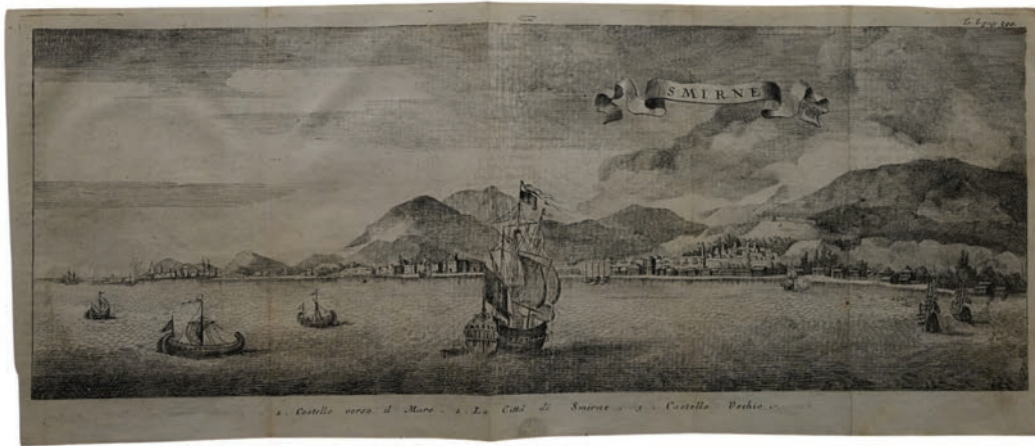 SMIRNE
1. Castello verso il Mare. 2. La Città di Smirne. 3. Castello Vechio.